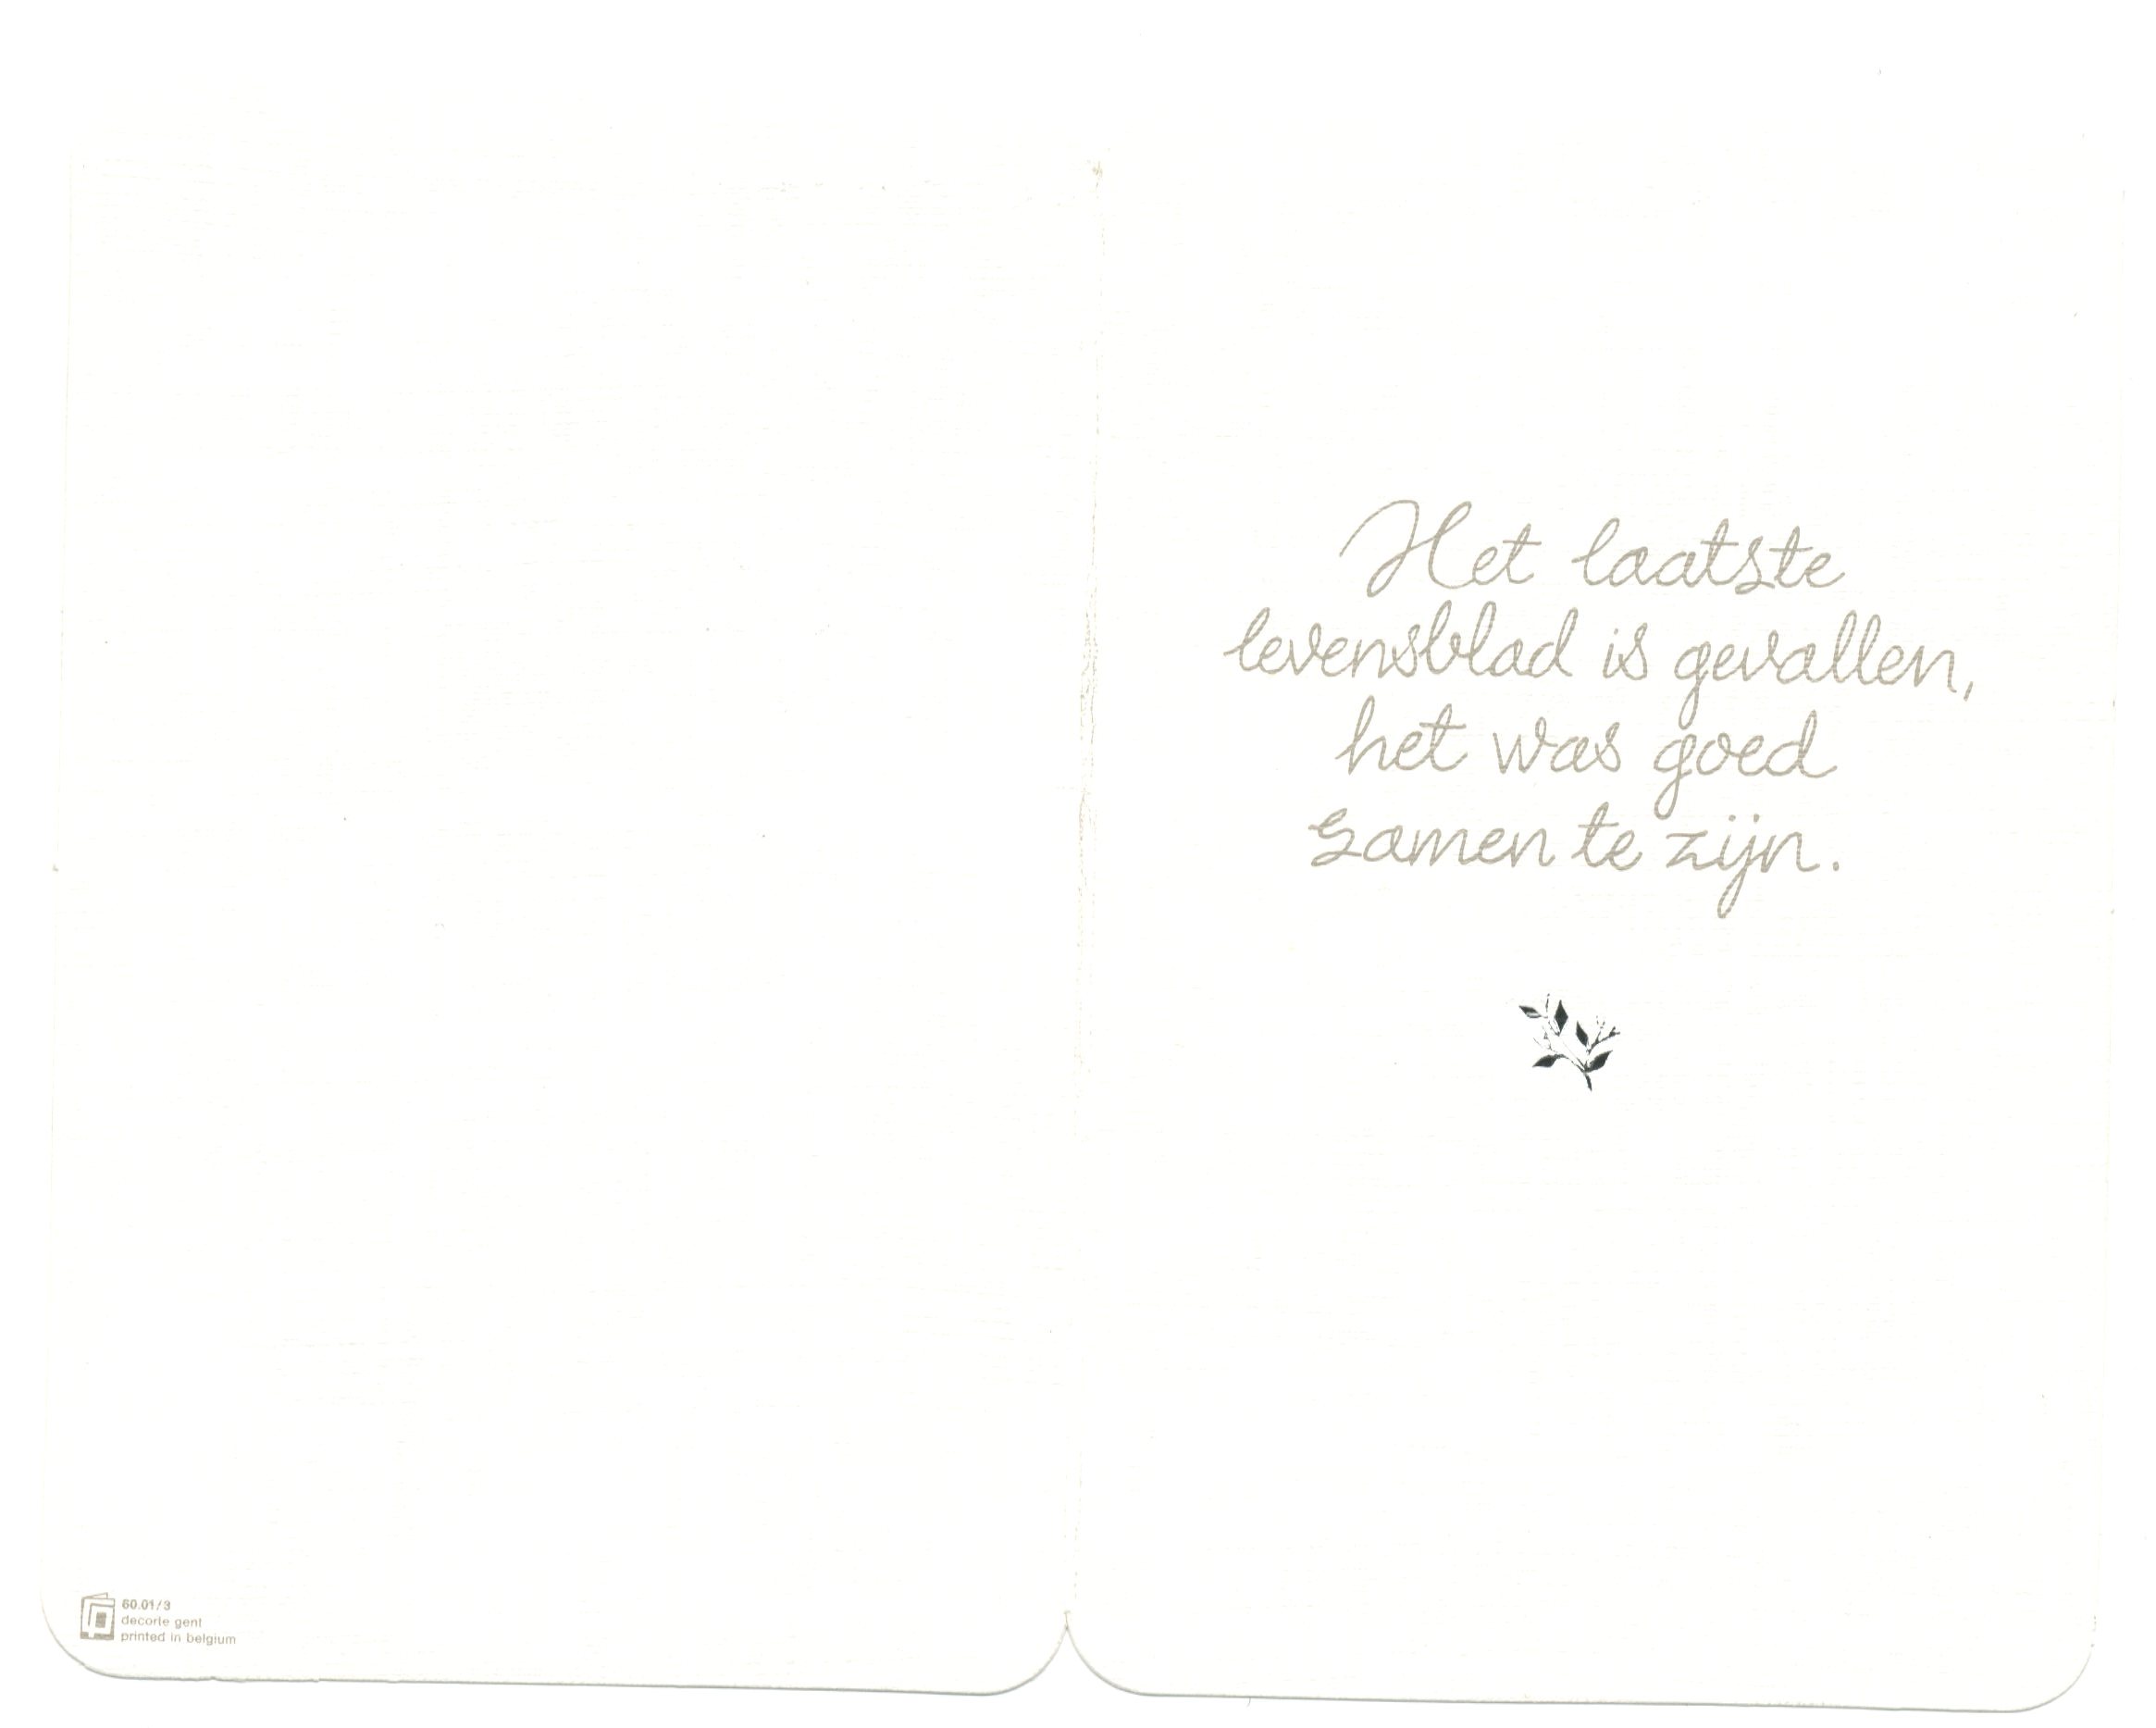 Het laatste
levensblad is gevallen,
het was goed
samen te zijn.
60.01/3
decorte gent
printed in belgium